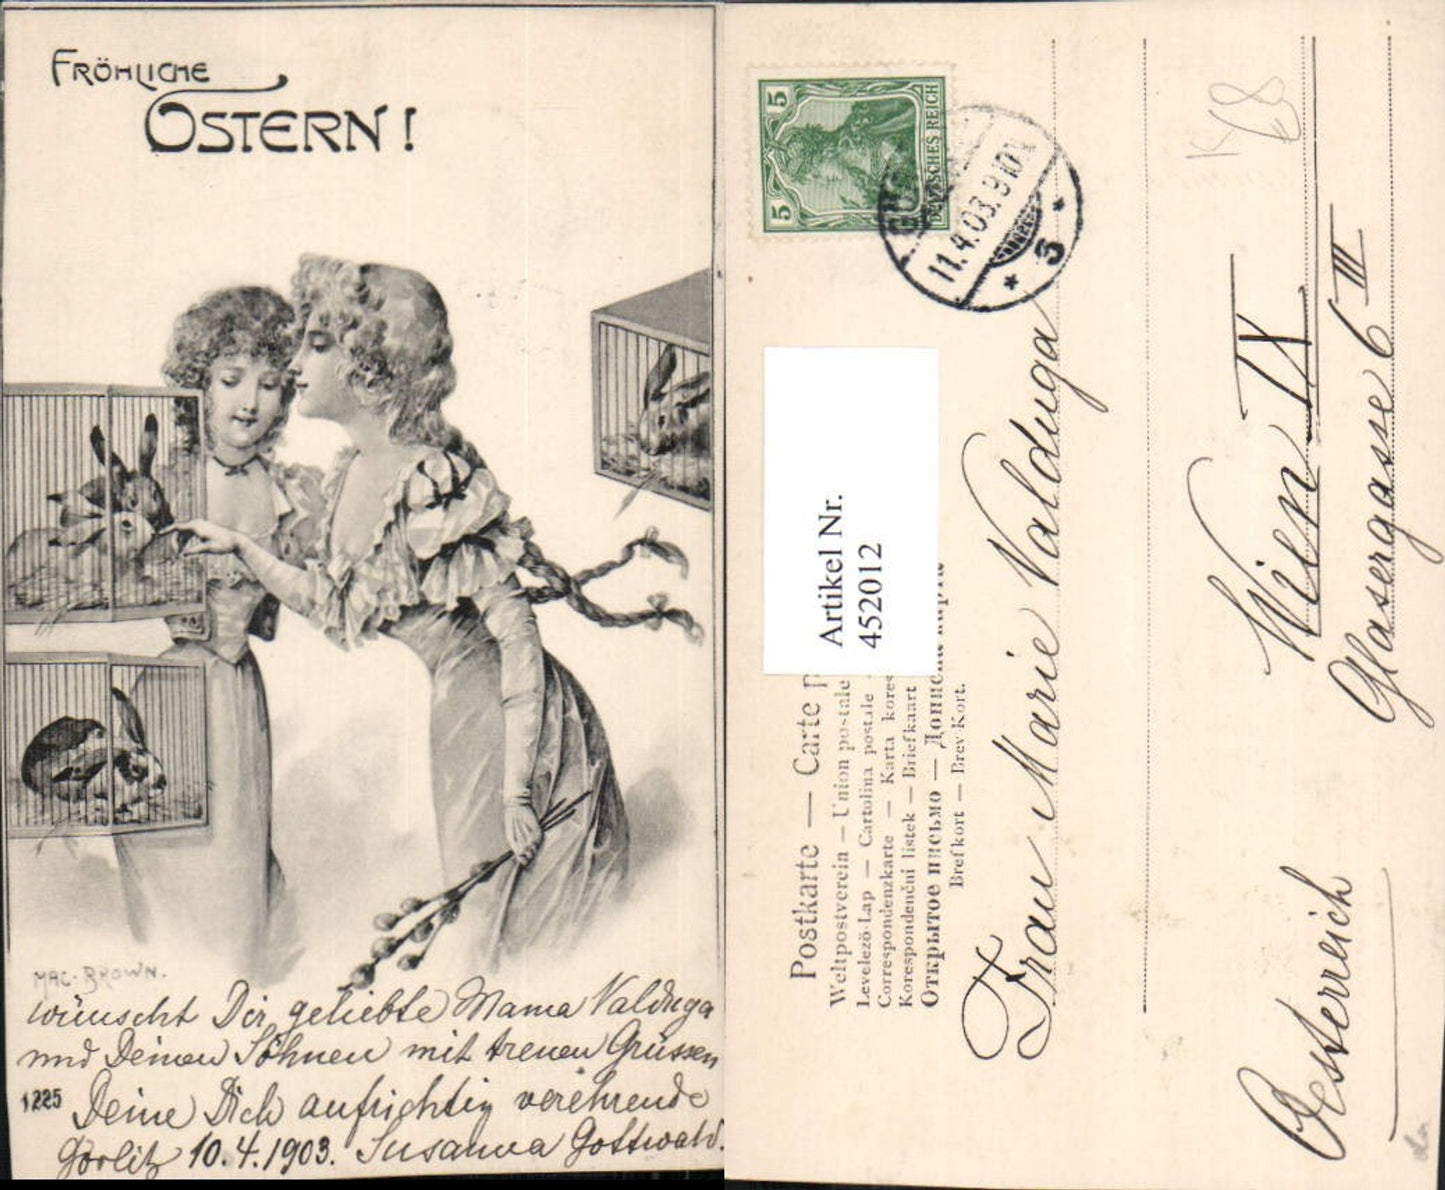 FRÖHLICHE
OSTERN!
MAC-BROWN.
wünscht Dir, geliebte Mama Valduga
und Deinen Söhnen mit treuen Grüssen
1225
Deine Dich aufrichtig verehrende
Görlitz 10.4.1903. Susanna Gottwald.
5
5
DEUTSCHES REICH
11.4.03.9-10V
* 5 *
Artikel Nr.
452012
Postkarte — Carte
Weltpostverein — Union postale
Levelező-Lap — Cartolina postale
Correspondenzkarte — Karta
Korespondenční lístek — Briefkaart
Открытое письмо —
Brefkort — Brev-Kort.
Frau Marie Valduga
Wien IX
Glasergasse 6 III
Oesterreich